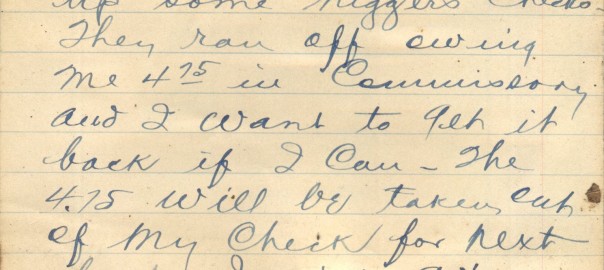 up some niggers checks.
They ran off owing
me 4 75 in Commissary
and I want to geh it
back if I Can - The
4.75 will be taken out
of my Check for next